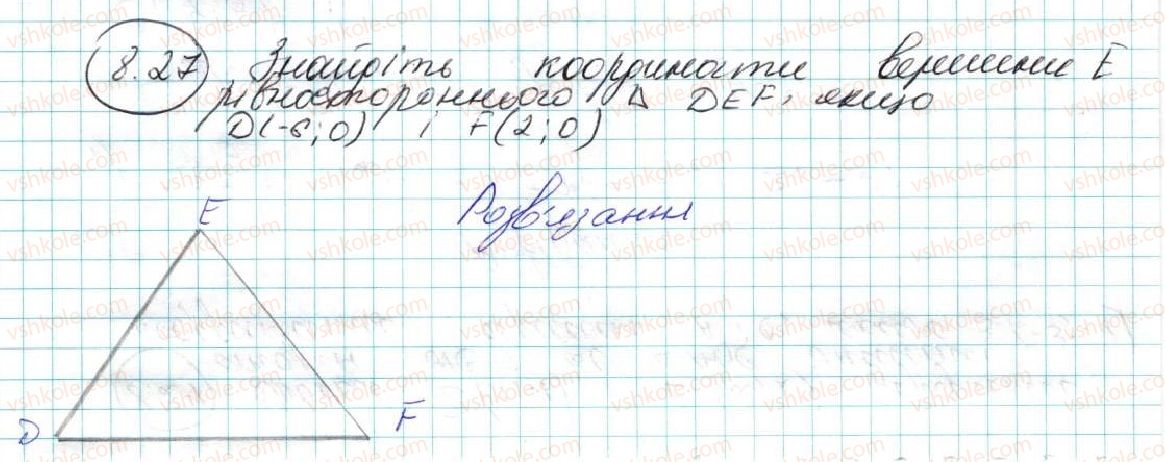 8.27 Знайдіть координати вершини E
рівностороннього Δ DEF, якщо
D(-6;0) і F(2;0)
Розв'язання
E
D F